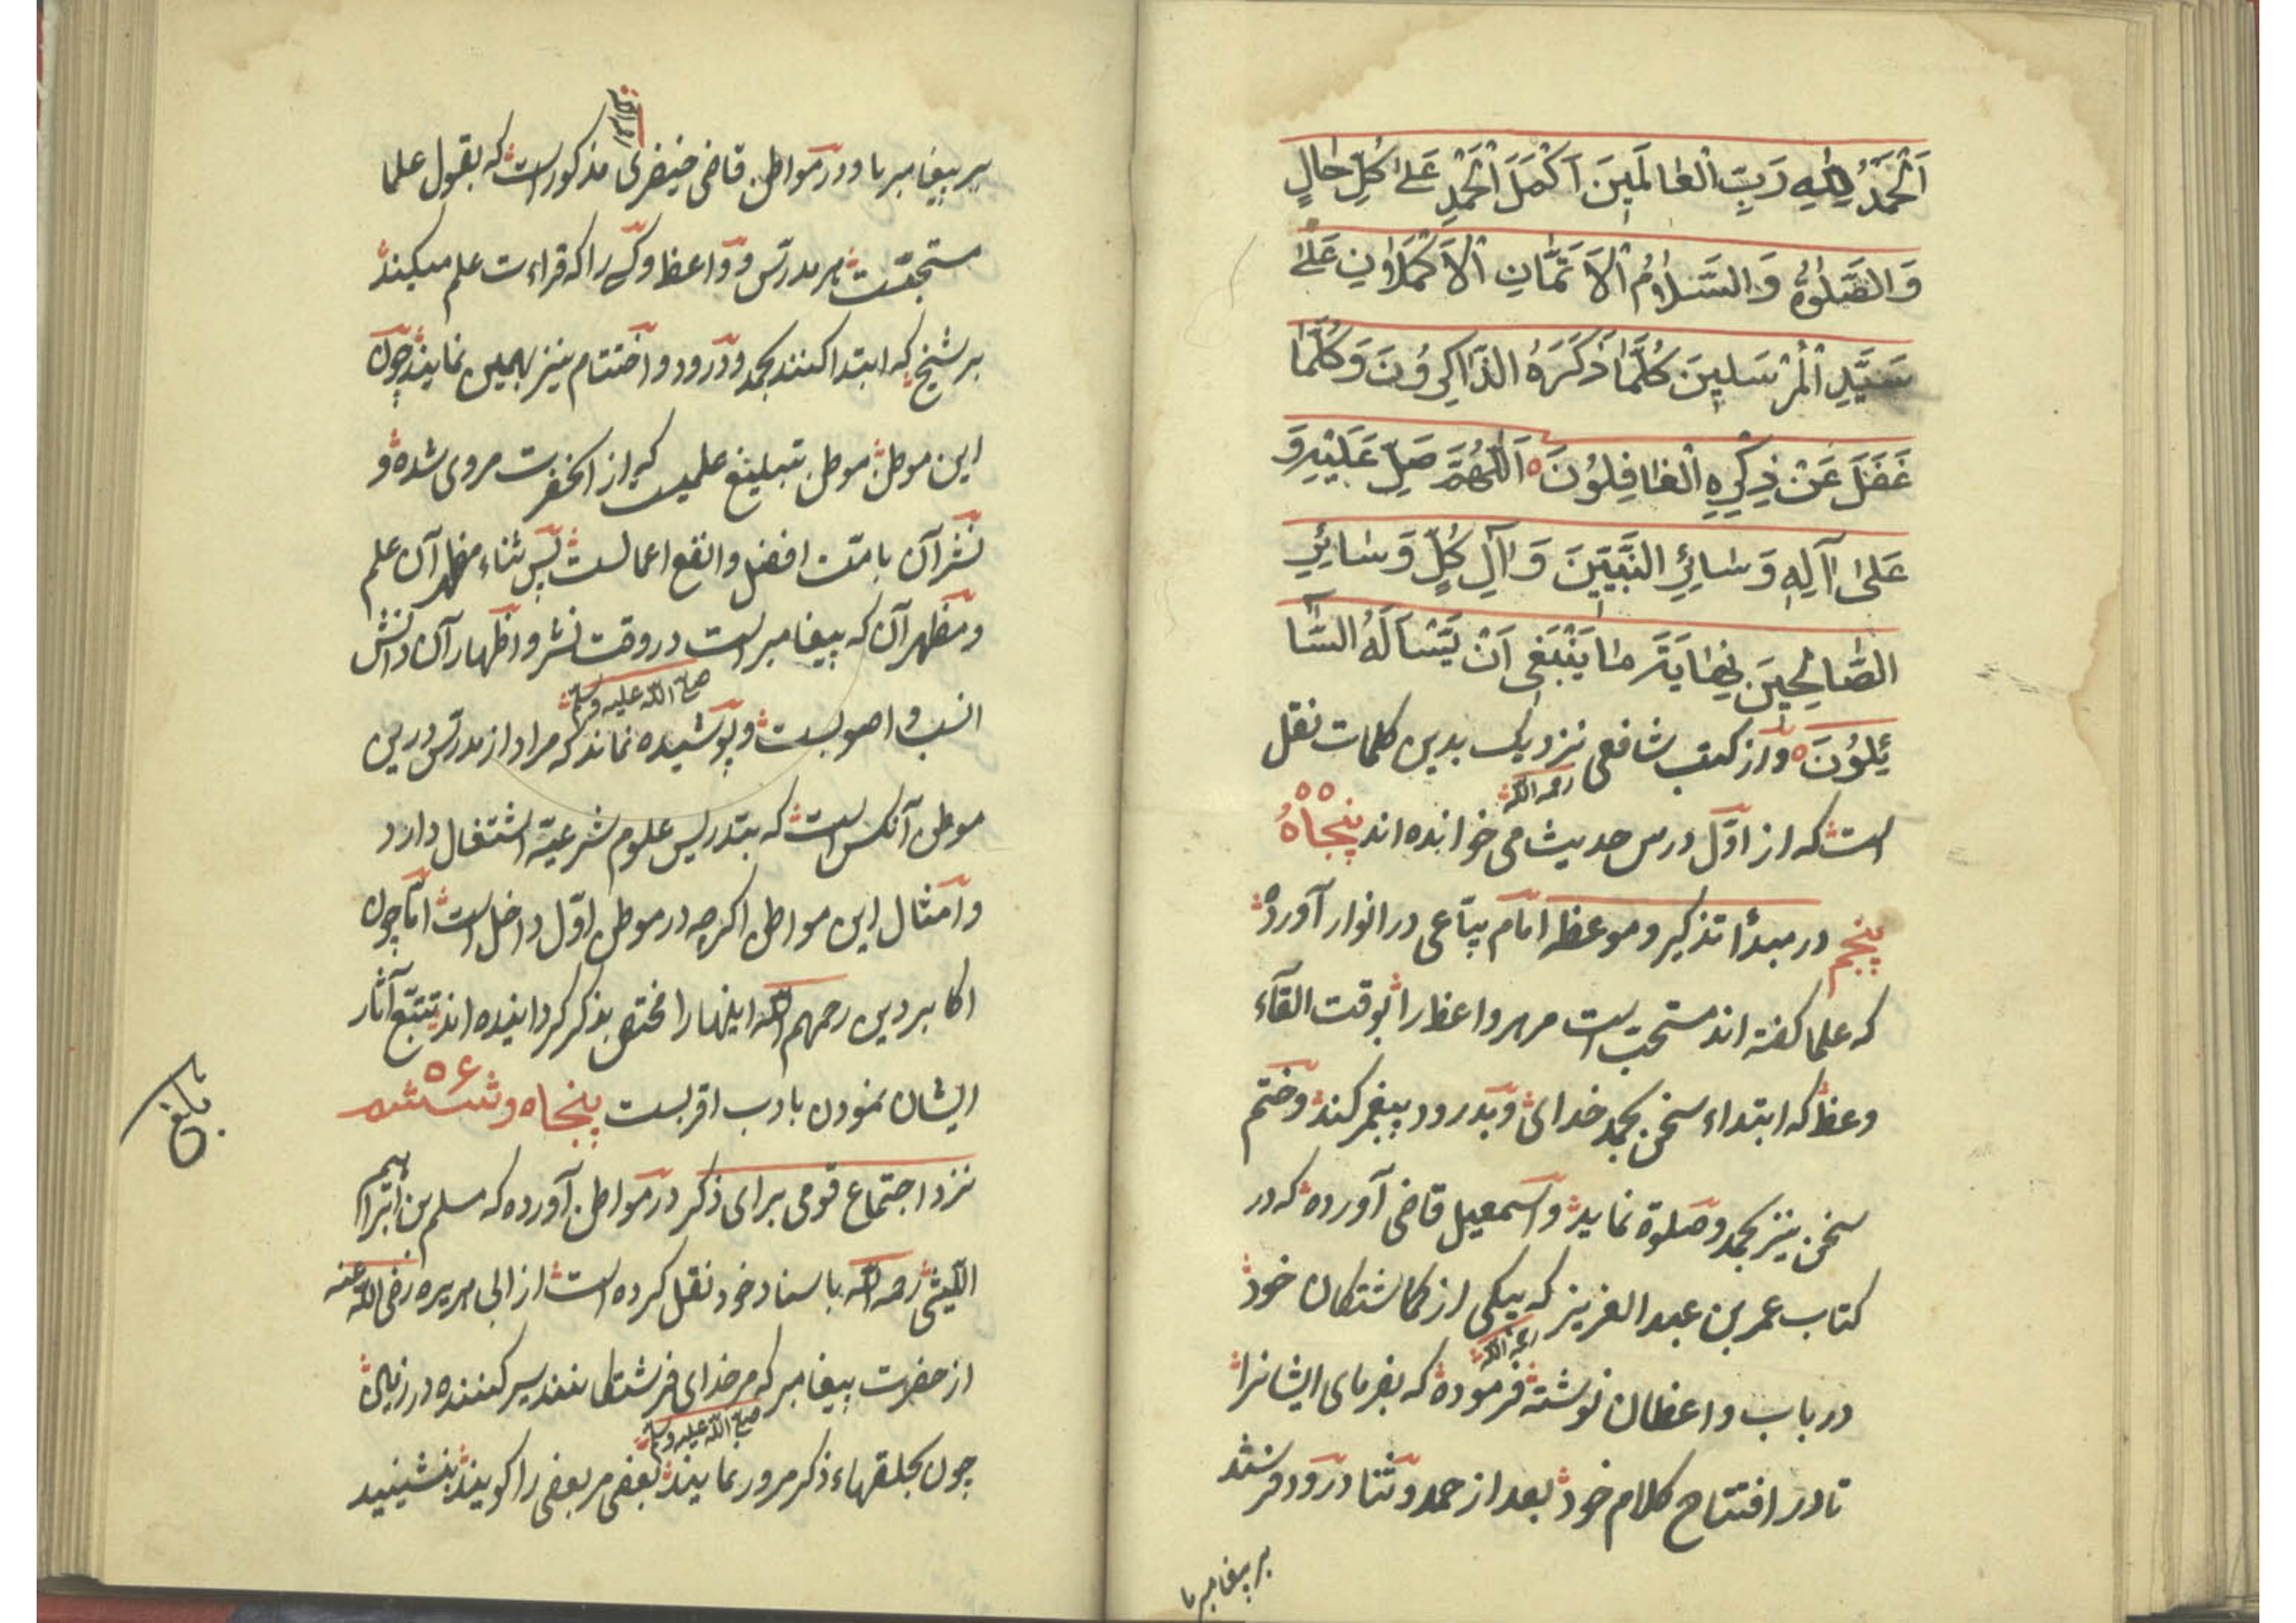 اَلْحَمْدُ لِلّٰهِ رَبِّ الْعَالَمِينَ اَكْمَلَ الْحَمْدِ عَلٰى كُلِّ حَالٍ
وَالصَّلٰوةُ وَالسَّلَامُ الْاَتَمَّانِ الْاَكْمَلَانِ عَلٰى
سَيِّدِ الْمُرْسَلِينَ كُلَّمَا ذَكَرَهُ الذَّاكِرُونَ وَكُلَّمَا
غَفَلَ عَنْ ذِكْرِهِ الْغَافِلُونَ ه اَللّٰهُمَّ صَلِّ عَلَيْهِ وَ
عَلٰى اٰلِهِ وَسَائِرِ النَّبِيِّينَ وَاٰلِ كُلٍّ وَسَائِرِ
الصَّالِحِينَ نِهَايَةَ مَا يَنْبَغِي اَنْ يَسْاَلَهُ السَّا
ئِلُونَ ه واز کتب شافعی رحمه الله نزدیک بدین کلمات نقل
است که از اوّل درس حدیث می خوانده اند پنجاهُ ۵۵
پنجم در مبدأ تذکیر و موعظه امام در انوار آورده
که علما کفته اند مستحبّ است مر هر واعظ را بوقت القآء
وعظ که ابتداء سخن بحمد خدای و بدرود پیغمبر کند و ختم
سخن نیز بحمد و صلوة نماید و اسمعیل قاضی آورده که در
کتاب عمر بن عبد العزیز که بیکی از کماشتکان خود
در باب واعظان نوشته فرموده که بفرمای ایشانرا
تا در افتتاح کلام خود بعد از حمد و ثنا درود فرستند
بر پیغامبر ما
بر پیغامبر ما و در مواطن قاضی خیضری مذکور است که بقول علما
مستحبّست هر مدرّس و واعظ و کسی را که قراءت علم میکند
بر شیخ که ابتدا کنند بحمد و درود و اختتام نیز بهمین نمایند چون
این موطن موطن تبلیغ علمیست که از آنحضرت مروی شده و
نشر آن بامّت افضل و انفع اعمالست پس ثناء مظهر آن علم
و مظهر آن که پیغامبر است در وقت نشر و اظهار آن دانش
انسب و اصوبست و پوشیده نماند که مراد از مدرّس درین
صلی الله علیه وسلم
موطن آنکس است که بتدریس علوم شرعیّه اشتغال دارد
و امثال این مواطن اکرچه در موطن اوّل داخل است امّا چون
اکابر دین رحمهم الله اینها را مختص بذکر کردانیده اند تتبّع آثار
ایشان نمودن بادب اقربست پنجاه و ششم ۵۶
بلغ
نزد اجتماع قومی برای ذکر در مواطن آورده که مسلم بن ابراهیم
اللیثی رحمه الله باسناد خود نقل کرده است از ابی هریره رضی الله عنه
از حضرت پیغامبر که مر خدای فرشتکانند سیر کننده در زمین
صلی الله علیه وسلم
چون بحلقهاء ذکر مرور نمایند بعضی مر بعضی را کویند بنشینید